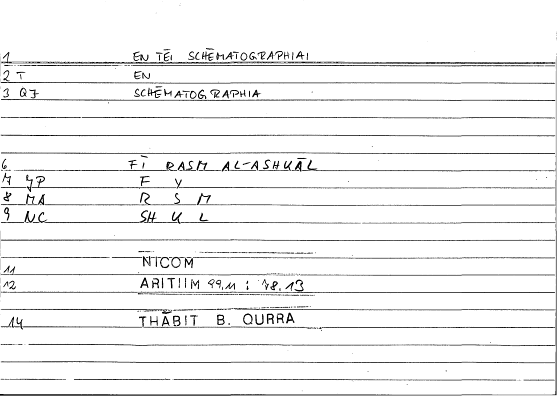 1 EN TĒI SCHĒMATOGRAPHIAI
2 T EN
3 QJ SCHĒMATOGRAPHIA
6 FĪ RASM AL-ASHUĀL
7 YP F Y
8 MA R S M
9 NC SH U L
11 NICOM
12 ARITIIM 99,11 : 78.13
14 THĀBIT B. QURRA